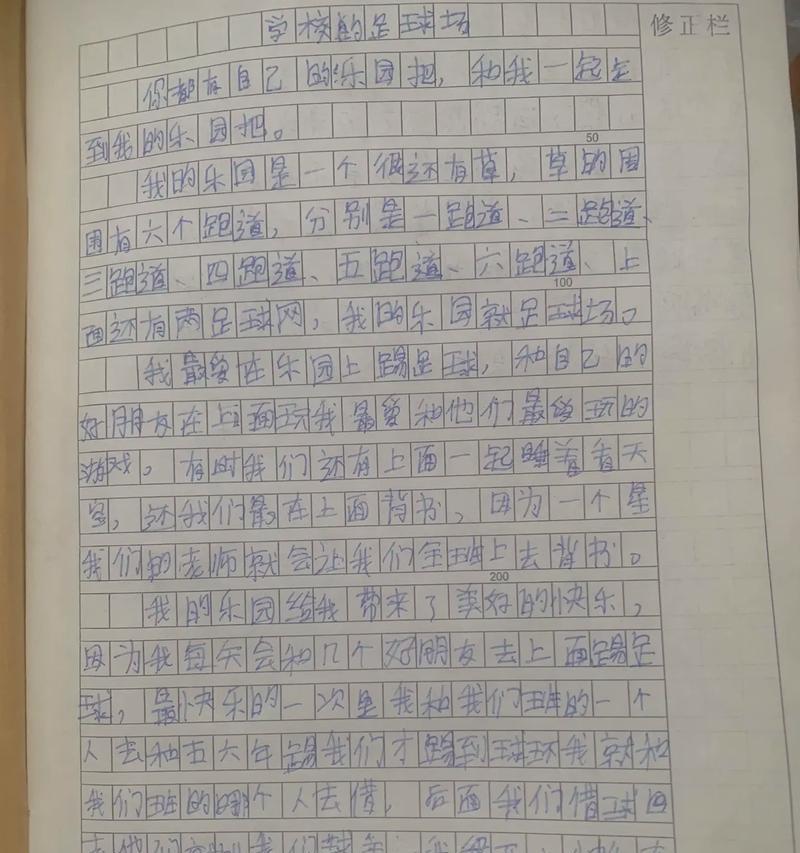 学校的足球场
修正栏
你都有自己的乐园把，和我一起走
到我的乐园把。
50
我的乐园是一个很还有草，草的周
围有六个跑道，分别是一跑道、二跑道、
三跑道、四跑道、五跑道、六跑道、上
100
面还有两足球网，我的乐园就足球场。
我最爱在乐园上踢足球，和自己的
好朋友在上面玩我最爱和他们最爱玩的
游戏。有时我们还有上面一起睡着看天
空，还我们最在上面背书，因为一个星
我们的老师就会让我们全班上去背书。
200
我的乐园给我带来了美好的快乐，
因为我每天会和几个好朋友去上面踢足
球，最快乐的一次是我和我们班的一个
人去和五六年踢我们才踢到球环我就和
我们班的哪个人去借，后面我们借球回
去他们